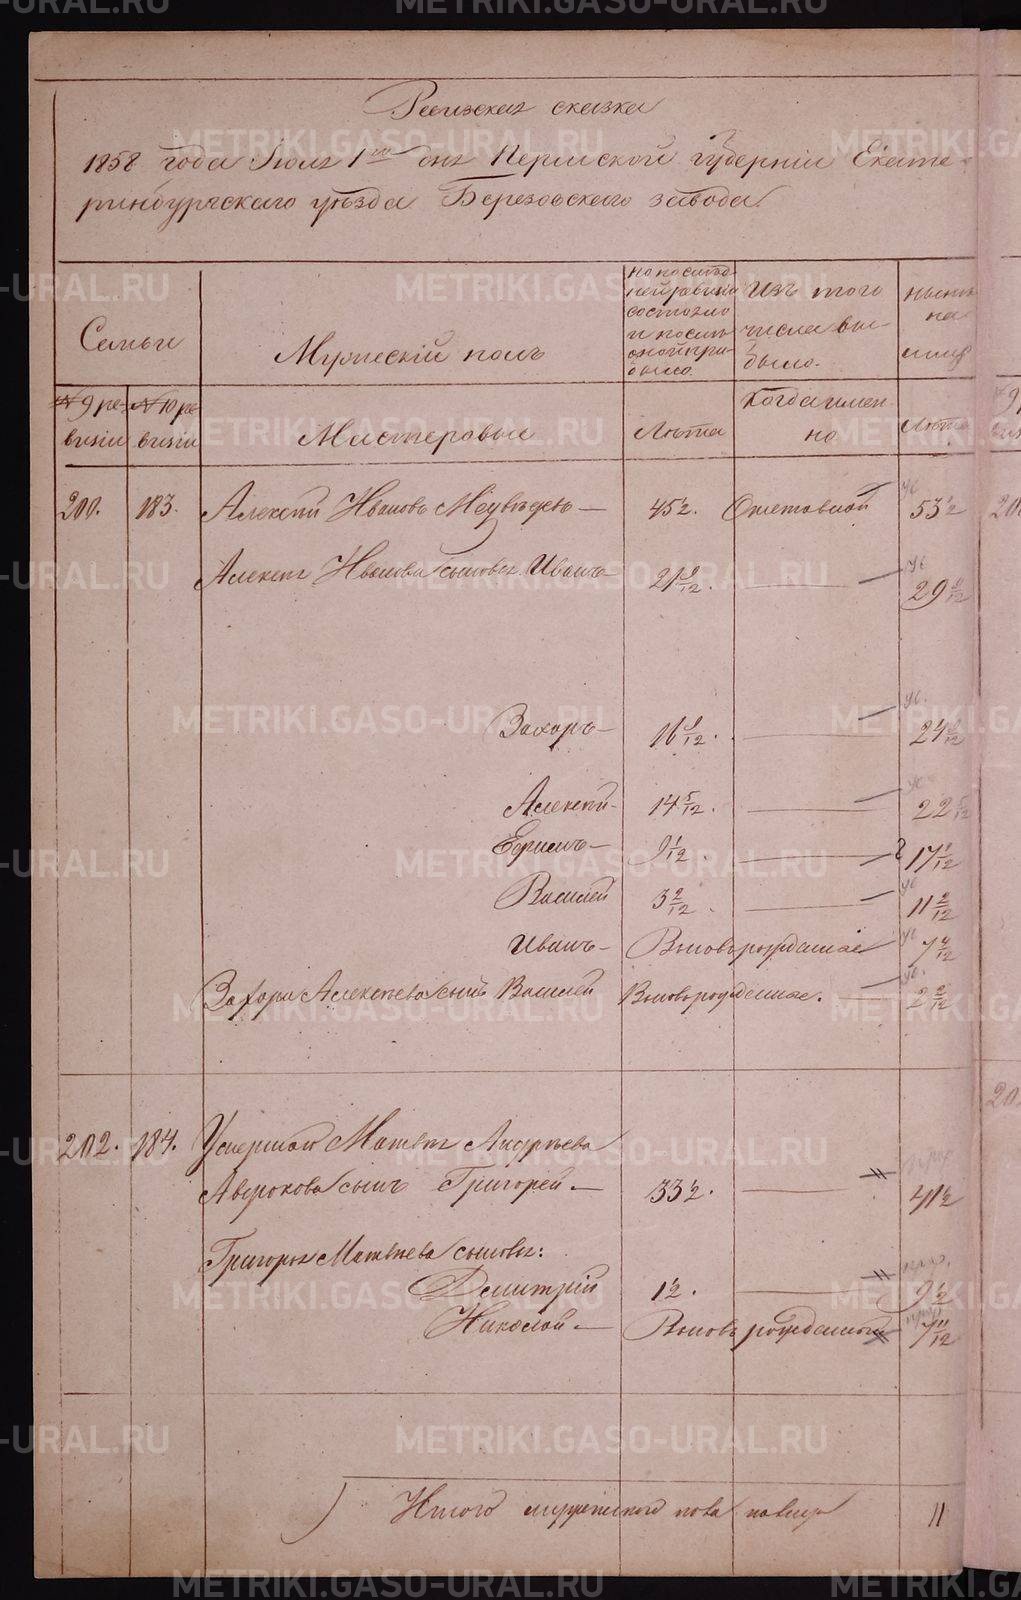 Ревизская сказка
1858 года Июля 1го дня Пермской губернии Екате-
ринбургскаго уезда Березовскаго завода.
Семьи
Мужескій полъ
по послед-
ней ревизіи
состояло
и после
оной при-
было.
Изъ того
числа вы-
было.
ныне
на
лицо
№ 9 ре-
визіи
№ 10 ре-
визіи
Мастеровые
Лета
Когда имен-
но
Лета
200. 183. Алексей Ивановъ Медведевъ — 45½. Отставной 53½
Алексея Иванова сыновья Иванъ 21 /12. 29 /12
Захаръ — 16 /12. 24 /12
Алексей — 14 5/12. 22 5/12
Ефимъ — 9 1/12. 17 1/12
Василей 3 2/12. 11 2/12
Иванъ — Вновьрожденные 7 4/12
Захара Алексеева сынъ Василей Вновьрожденные. 2 2/12
202. 184. Умершаго Матвея Андреева
сынъ Григорей — 33½. 41½
Григорья Матвеева сыновья:
Дмитрій 1½. 9½
Николай — Вновь рожденный 7 11/12
Итого мужескаго пола налицо 11
METRIKI.GASO-URAL.RU